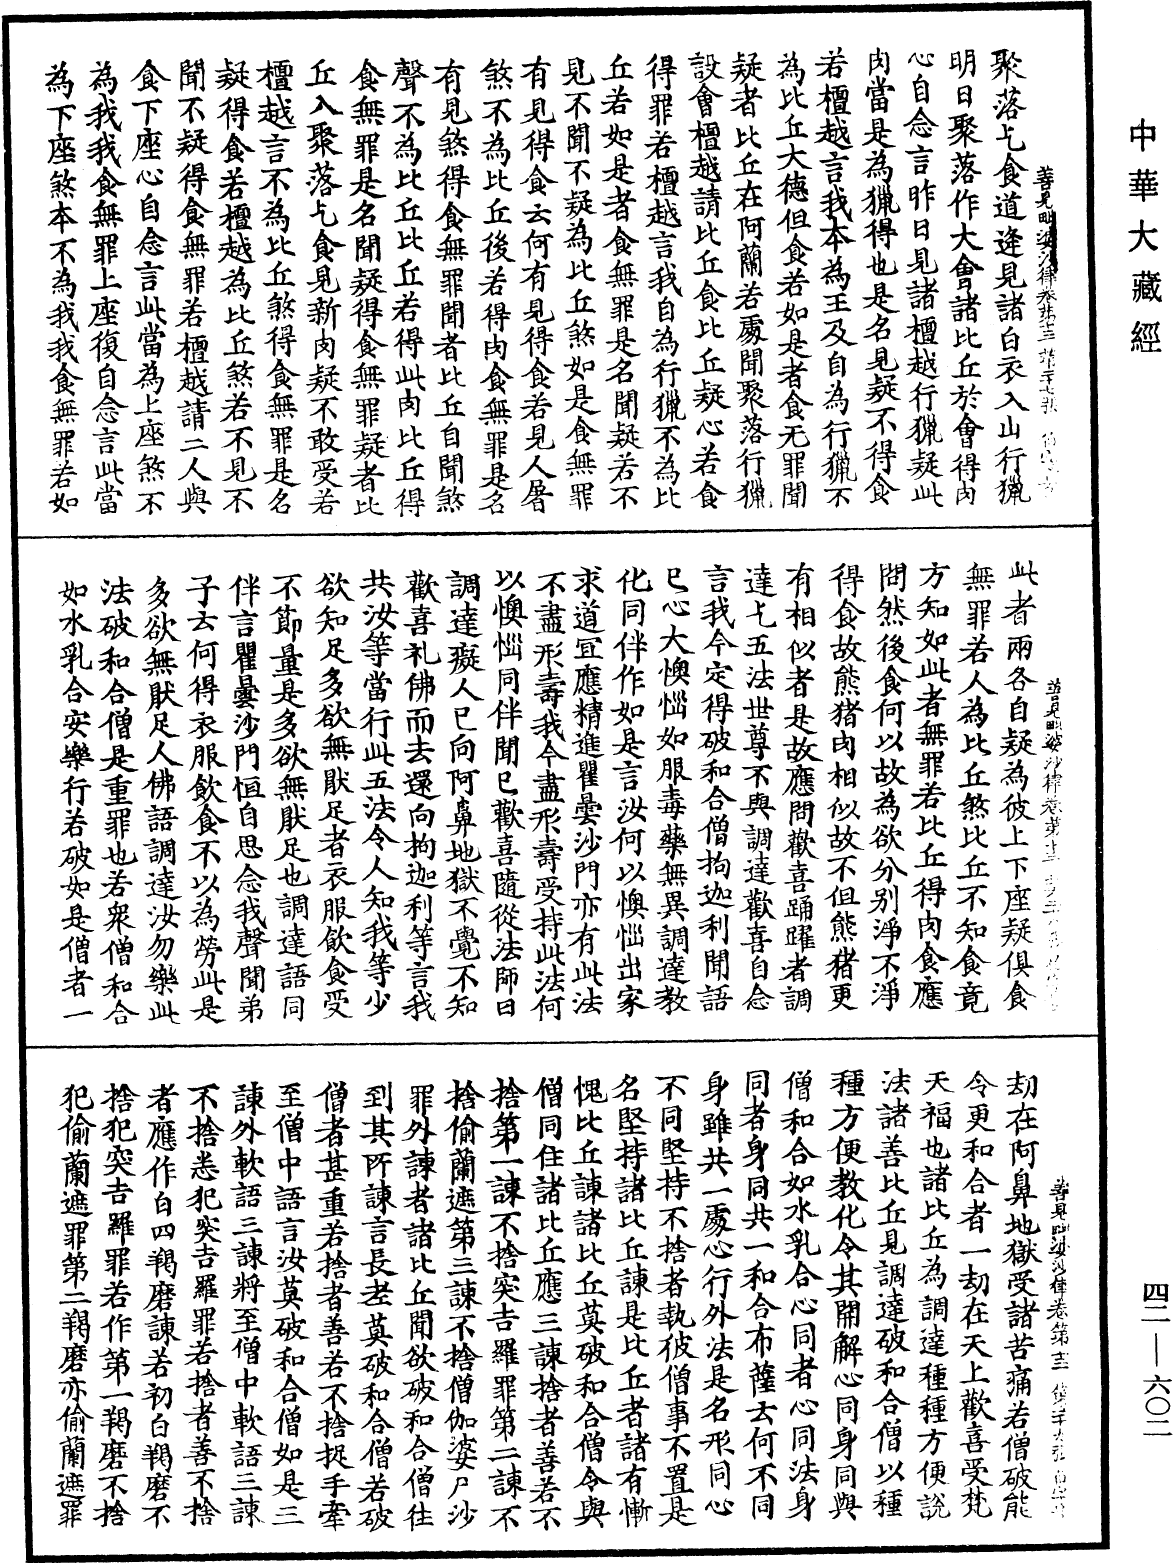 中華大藏經
聚落乞食道逢見諸白衣入山行獵
明日聚落作大會諸比丘於會得肉
心自念言昨日見諸檀越行獵疑此
肉當是為獵得也是名見疑不得食
若檀越言我本為王及自為行獵不
為比丘大德但食若如是者食无罪聞
疑者比丘在阿蘭若處聞聚落行獵
設會檀越請比丘食比丘疑心若食
得罪若檀越言我自為行獵不為比
丘若如是者食無罪是名聞疑若不
見不聞不疑為比丘煞如是食無罪
有見得食云何有見得食若見人屠
煞不為比丘後若得肉食無罪是名
有見煞得食無罪聞者比丘自聞煞
聲不為比丘比丘若得此肉比丘得
食無罪是名聞疑得食無罪疑者比
丘入聚落乞食見新肉疑不敢受若
檀越言不為比丘煞得食無罪是名
疑得食若檀越為比丘煞若不見不
聞不疑得食無罪若檀越請二人與
食下座心自念言此當為上座煞不
為我我食無罪上座復自念言此當
為下座煞本不為我我食無罪若如
此者兩各自疑為彼上下座疑俱食
無罪若人為比丘煞比丘不知食竟
方知如此者無罪若比丘得肉食應
問然後食何以故為欲分别淨不淨
得食故熊猪肉相似故不但熊猪更
有相似者是故應問歡喜踊躍者調
達乞五法世尊不與調達歡喜自念
言我今定得破和合僧拘迦利聞語
已心大懊惱如服毒藥無異調達教
化同伴作如是言汝何以懊惱出家
求道宜應精進瞿曇沙門亦有此法
不盡形壽我今盡形壽受持此法何
以懊惱同伴聞已歡喜隨從法師曰
調達癡人已向阿鼻地獄不覺不知
歡喜礼佛而去還向拘迦利等言我
共汝等當行此五法令人知我等少
欲知足多欲無猒足者衣服飲食受
不節量是多欲無猒足也調達語同
伴言瞿曇沙門恒自思念我聲聞弟
子云何得衣服飲食不以為勞此是
多欲無猒足人佛語調達汝勿樂此
法破和合僧是重罪也若衆僧和合
如水乳合安樂行若破如是僧者一
劫在阿鼻地獄受諸苦痛若僧破能
令更和合者一劫在天上歡喜受梵
天福也諸比丘為調達種種方便說
法諸善比丘見調達破和合僧以種
種方便教化令其開解心同身同與
僧和合如水乳合心同者心同法身
同者身同共一和合布薩云何不同
身雖共一處心行外法是名形同心
不同堅持不捨者執彼僧事不置是
名堅持諸比丘諫是比丘者諸有慚
愧比丘諫諸比丘莫破和合僧令與
僧同住諸比丘應三諫捨者善若不
捨第一諫不捨突吉羅罪第二諫不
捨偷蘭遮第三諫不捨僧伽婆尸沙
罪外諫者諸比丘聞欲破和合僧往
到其所諫言長老莫破和合僧若破
僧者甚重若捨者善若不捨捉手牽
至僧中語言汝莫破和合僧如是三
諫外軟語三諫將至僧中軟語三諫
不捨悉犯突吉羅罪若捨者善不捨
者應作白四羯磨諫若初白羯磨不
捨犯突吉羅罪若作第一羯磨不捨
犯偷蘭遮罪第二羯磨亦偷蘭遮罪
四二—六〇二